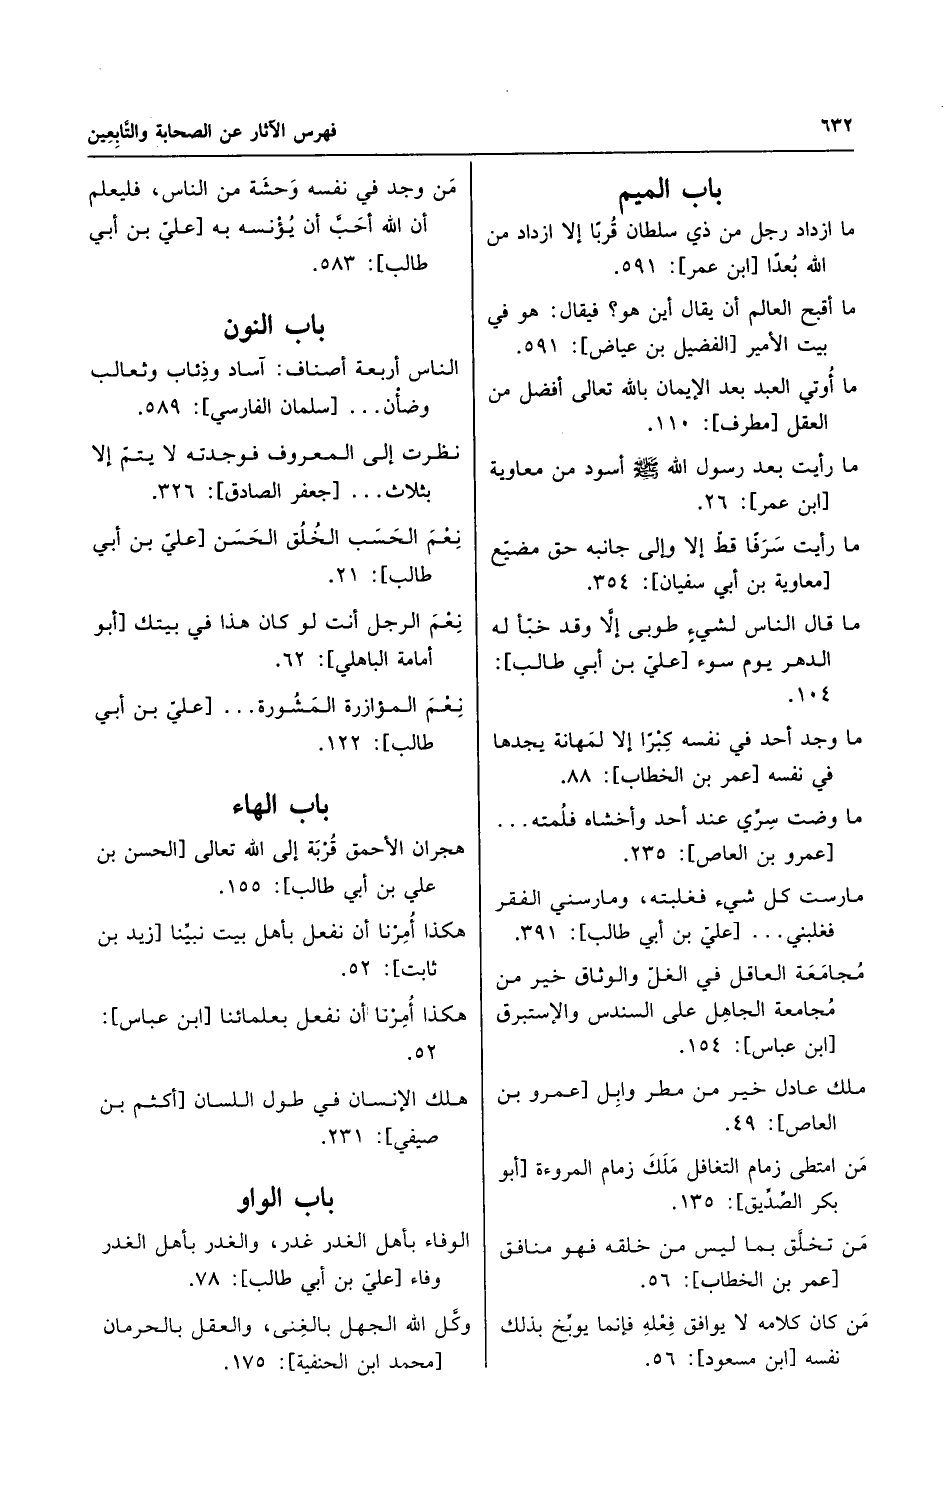 ٦٣٢
فهرس الآثار عن الصحابة والتَّابِعِين
باب الميم
ما ازداد رجل من ذي سلطان قُربًا إلا ازداد من
الله بُعدًا [ابن عمر]: ٥٩١.
ما أقبح العالم أن يقال أين هو؟ فيقال: هو في
بيت الأمير [الفضيل بن عياض]: ٥٩١.
ما أُوتي العبد بعد الإيمان بالله تعالى أفضل من
العقل [مطرف]: ١١٠.
ما رأيت بعد رسول الله ﷺ أسود من معاوية
[ابن عمر]: ٢٦.
ما رأيت سَرَفًا قطّ إلا وإلى جانبه حق مضيّع
[معاوية بن أبي سفيان]: ٣٥٤.
ما قال الناس لشيءٍ طوبى إلَّا وقد خبّأ له
الدهر يوم سوء [عليّ بن أبي طالب]:
١٠٤.
ما وجد أحد في نفسه كِبْرًا إلا لمَهانة يجدها
في نفسه [عمر بن الخطاب]: ٨٨.
ما وضت سِرّي عند أحد وأخشاه فلُمته...
[عمرو بن العاص]: ٢٣٥.
مارست كل شيء فغلبته، ومارسني الفقر
فغلبني... [عليّ بن أبي طالب]: ٣٩١.
مُجامَعَة العاقل في الغلّ والوثاق خير من
مُجامعة الجاهِل على السندس والإستبرق
[ابن عباس]: ١٥٤.
ملك عادل خير من مطر وابِل [عمرو بن
العاص]: ٤٩.
مَن امتطى زمام التغافل مَلَكَ زمام المروءة [أبو
بكر الصِّدِّيق]: ١٣٥.
مَن تخلَّق بما ليس من خلقه فهو منافق
[عمر بن الخطاب]: ٥٦.
مَن كان كلامه لا يوافق فِعْلهِ فإنما يوبِّخ بذلك
نفسه [ابن مسعود]: ٥٦.
مَن وجد في نفسه وَحشَة من الناس، فليعلم
أن الله أحَبَّ أن يُؤْنسه به [عليّ بن أبي
طالب]: ٥٨٣.
باب النون
الناس أربعة أصناف: آساد وذِئاب وثعالب
وضأن... [سلمان الفارسي]: ٥٨٩.
نظرت إلى المعروف فوجدته لا يتمّ إلا
بثلاث... [جعفر الصادق]: ٣٢٦.
نِعْمَ الحَسَب الخُلُق الحَسَن [عليّ بن أبي
طالب]: ٢١.
نِعْمَ الرجل أنت لو كان هذا في بيتك [أبو
أمامة الباهلي]: ٦٢.
نِعْمَ المؤازرة المَشُورة... [عليّ بن أبي
طالب]: ١٢٢.
باب الهاء
هجران الأحمق قُرْبَة إلى الله تعالى [الحسن بن
علي بن أبي طالب]: ١٥٥.
هكذا أُمِرْنا أن نفعل بأهل بيت نبيّنا [زيد بن
ثابت]: ٥٢.
هكذا أُمِرْنا أن نفعل بعلمائنا [ابن عباس]:
٥٢.
هلك الإنسان في طول اللسان [أكثم بن
صيفي]: ٢٣١.
باب الواو
الوفاء بأهل الغدر غدر، والغدر بأهل الغدر
وفاء [عليّ بن أبي طالب]: ٧٨.
وكَّل الله الجهل بالغِنى، والعقل بالحرمان
[محمد ابن الحنفية]: ١٧٥.